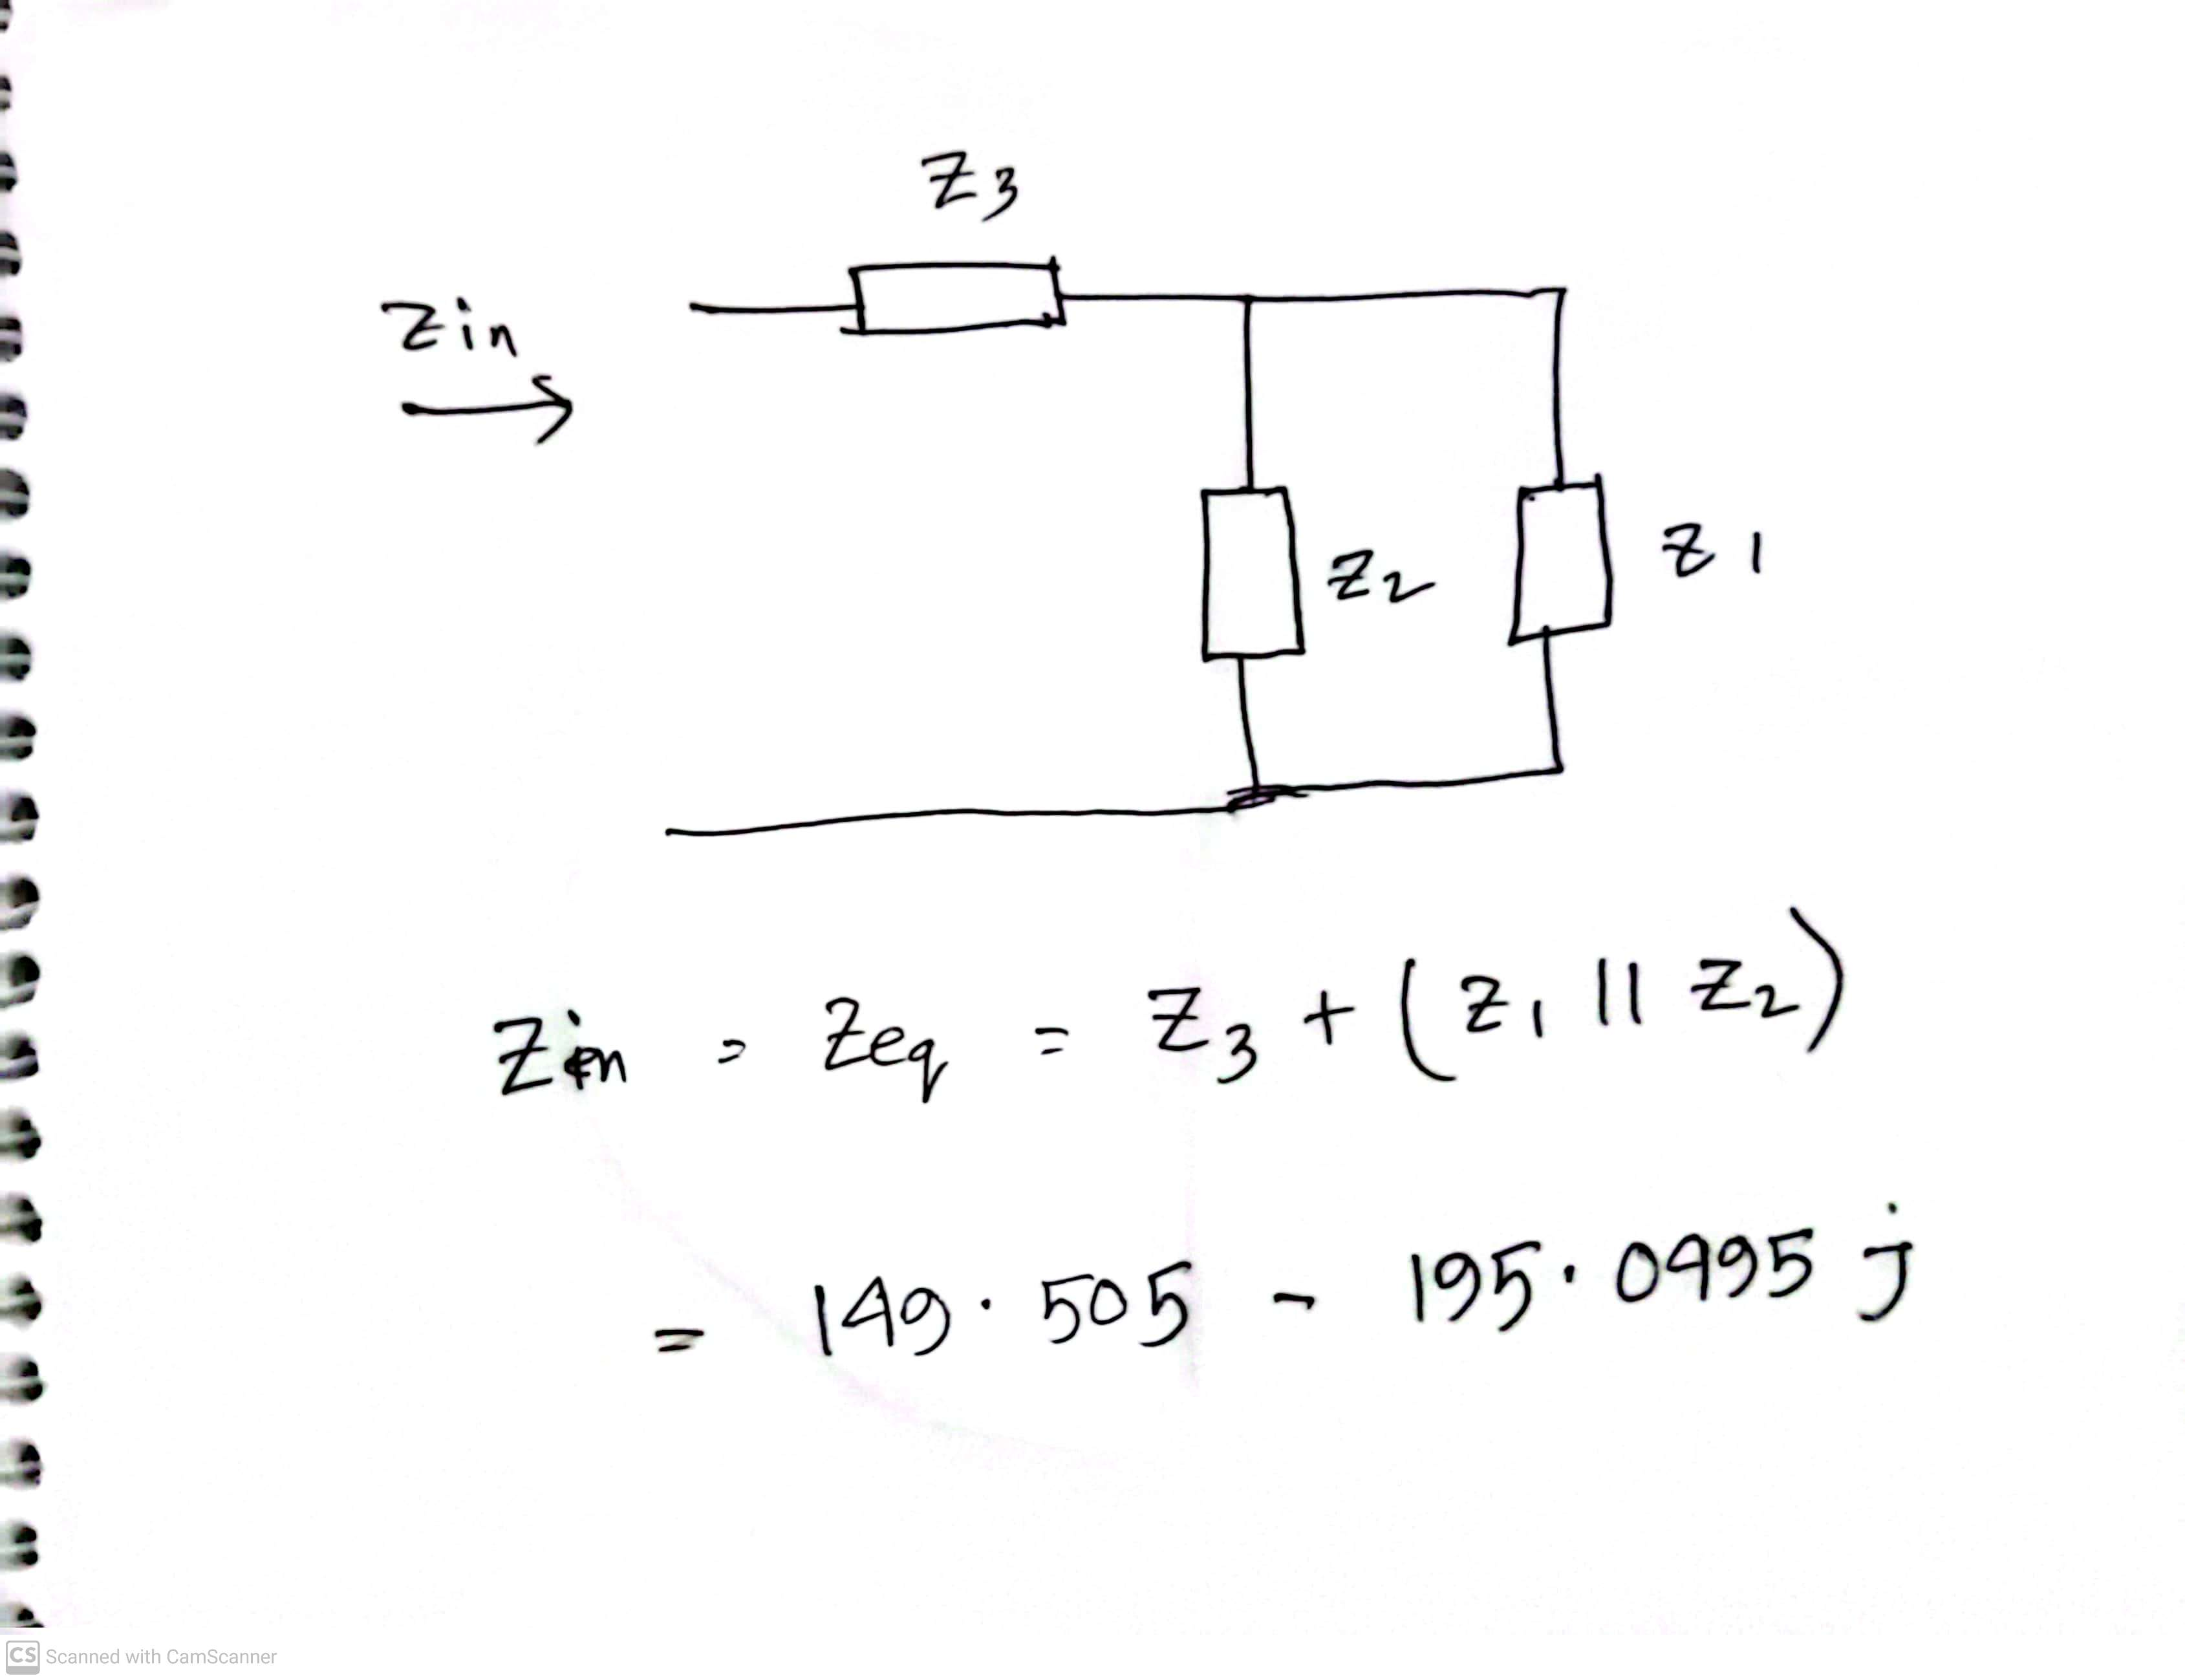 Z3
Zin
Z2
Z1
Zin = Zeq = Z3 + (Z1 || Z2)
= 149.505 - 195.0495 j
CS Scanned with CamScanner